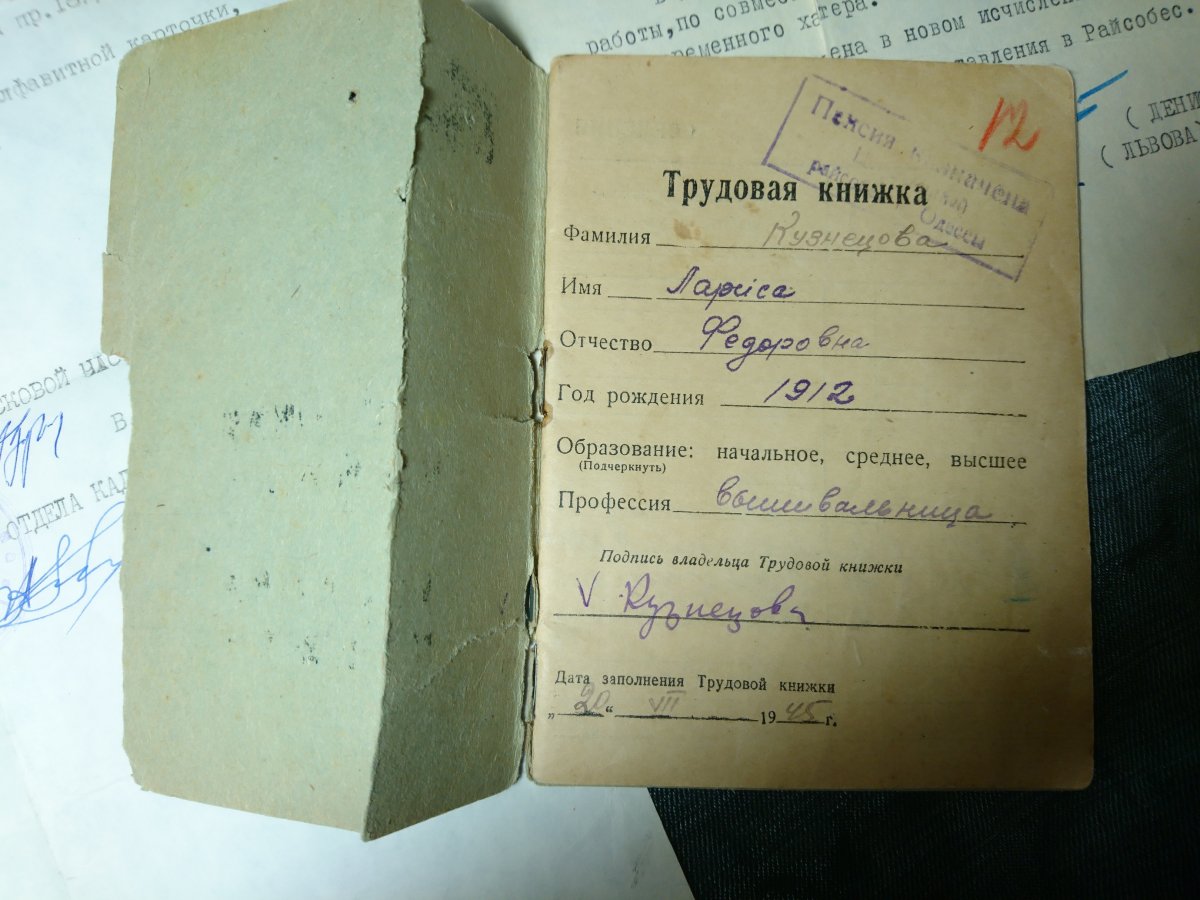 пр.
лфавитной карточки,
работы, по совмес
ременного хатера.
ена в новом исчислен
тавления в Райсобес.
( ДЕНИ
( ЛЬВОВА
СКОВОЙ ЧАС
В
ОТДЕЛА КА
12
Пенсия назначена
райсо
Одессы
Трудовая книжка
Фамилия Кузнецова
Имя Лариса
Отчество Федоровна
Год рождения 1912
Образование: начальное, среднее, высшее
(Подчеркнуть)
Профессия вышивальница
Подпись владельца Трудовой книжки
V Кузнецова
Дата заполнения Трудовой книжки
„20“ VIII 1945 г.